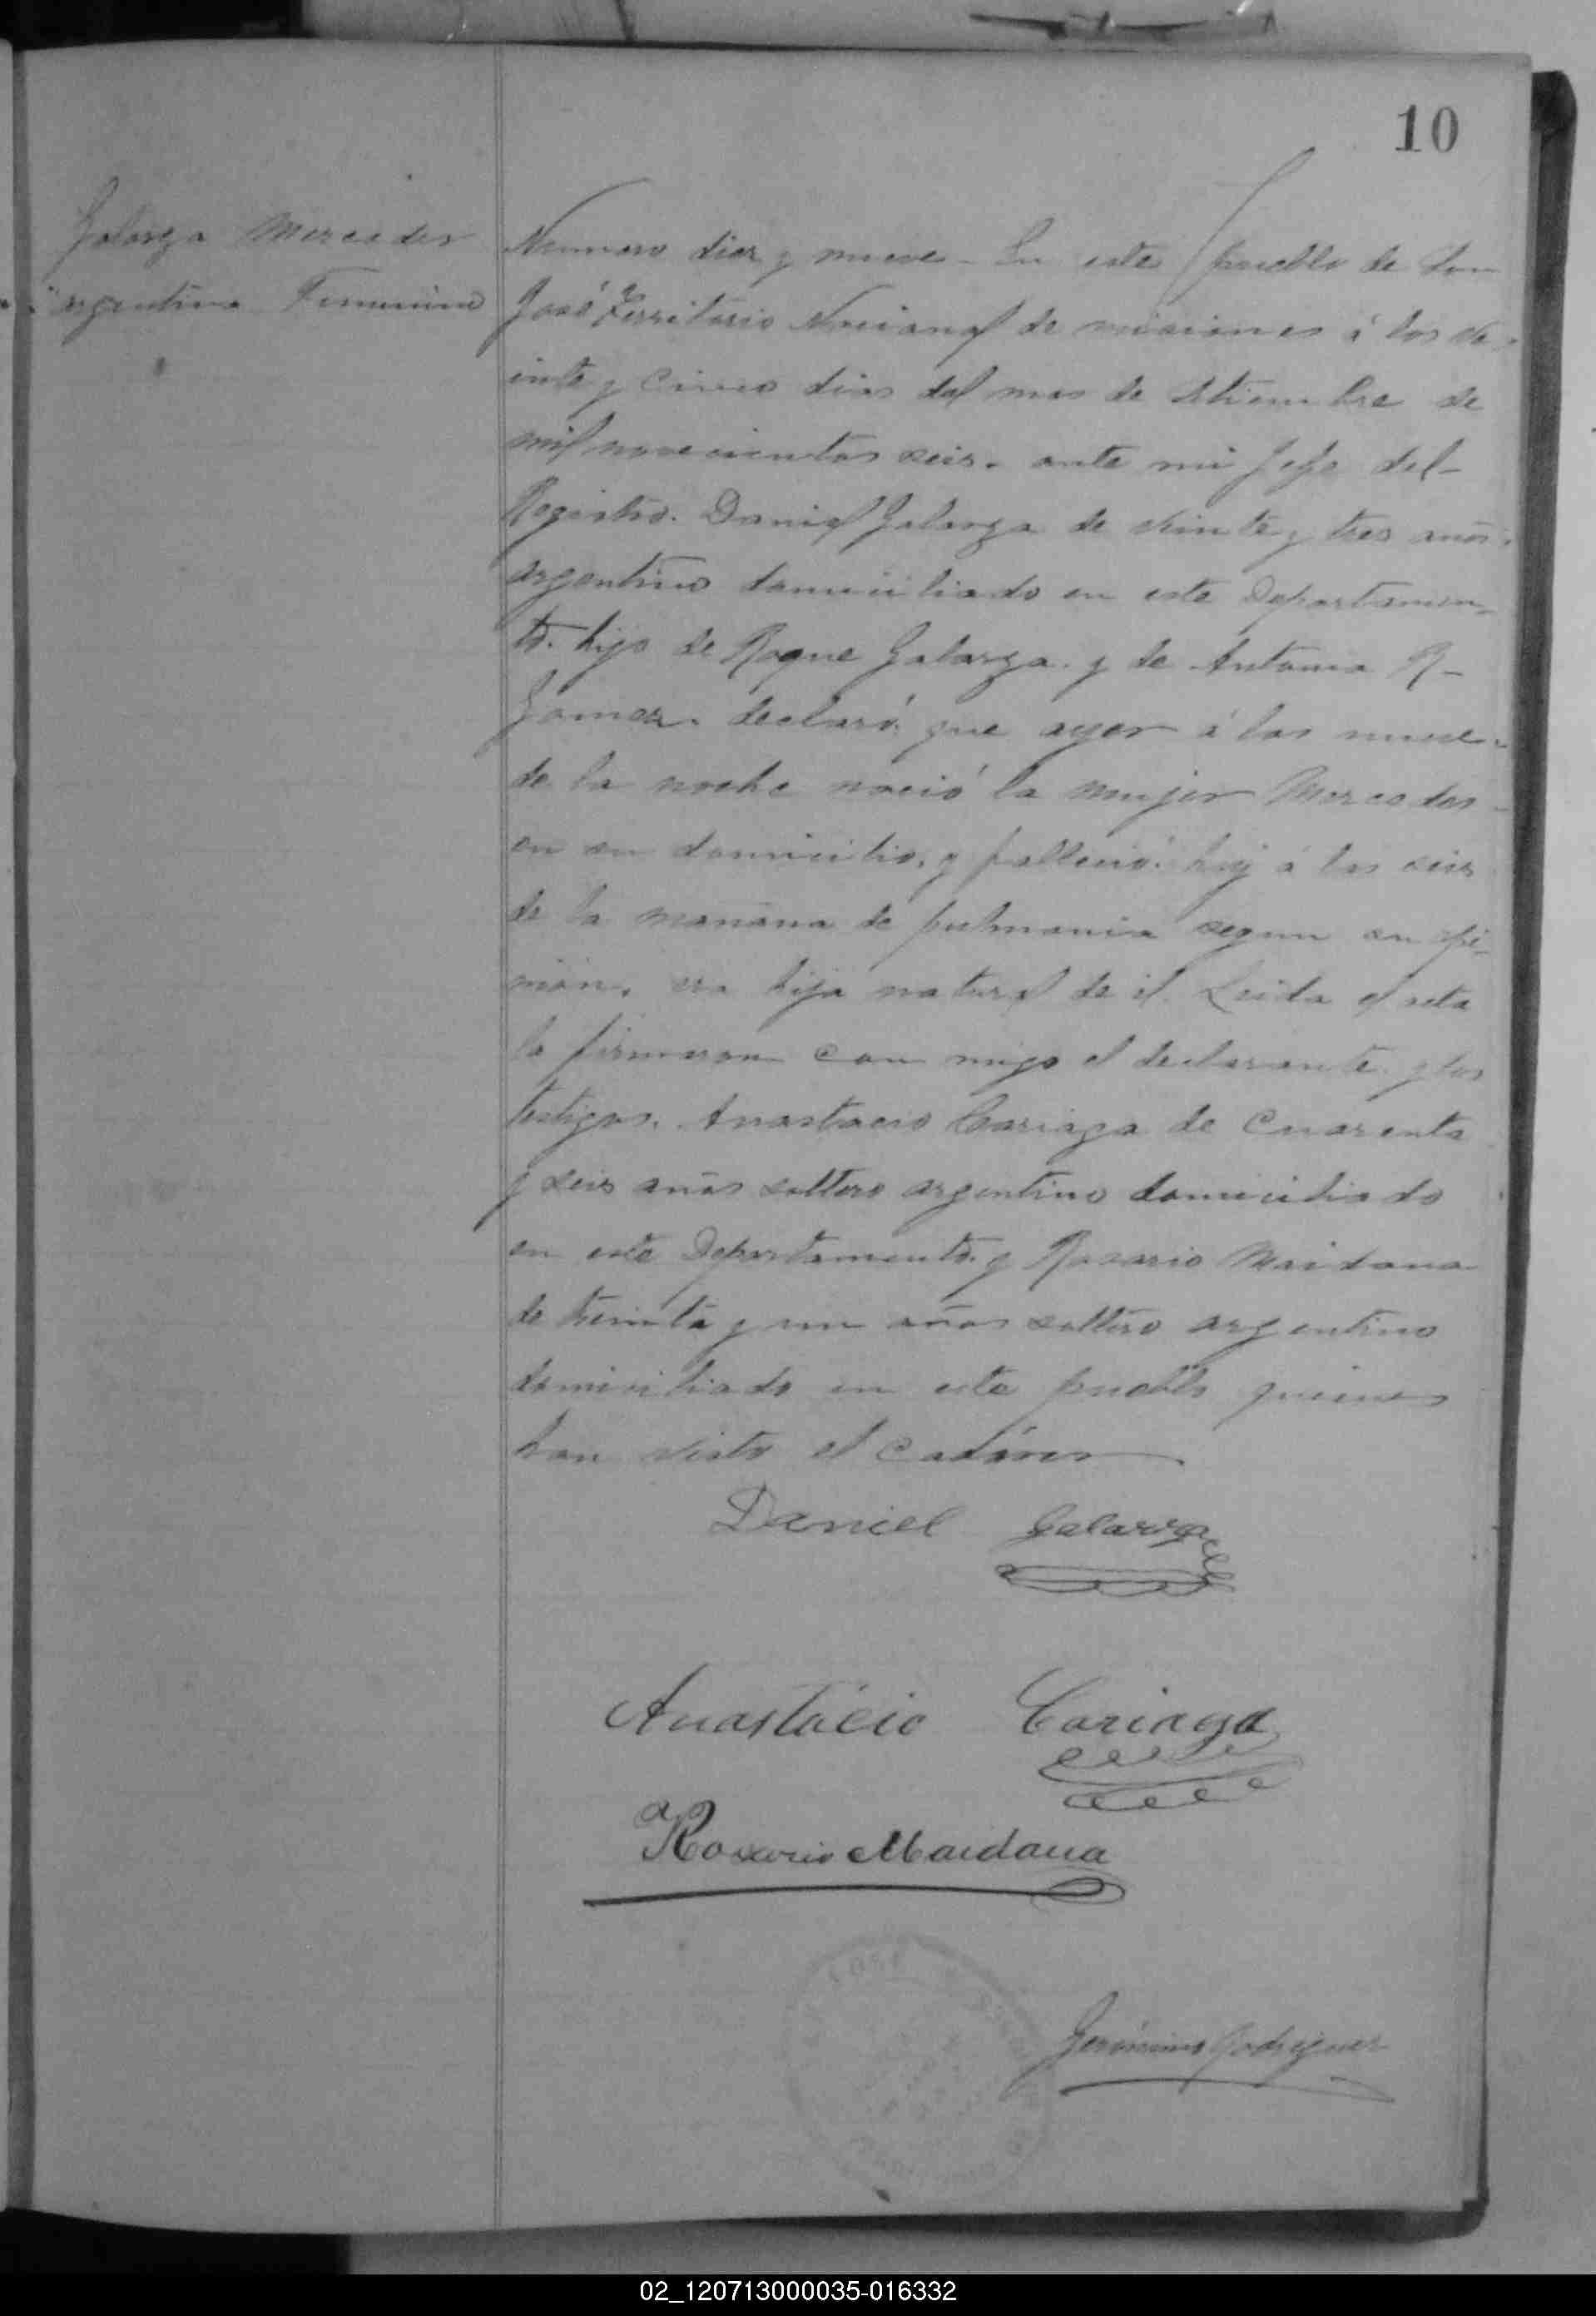 10
Galarza Mercedes
argentina Femenino
Numero diez y nueve - En este pueblo de San
José Territorio Nacional de misiones á los ve-
inte y cinco dias del mes de Setiembre de
mil novecientos seis. ante mi Jefe del-
Registro. Daniel Galarza de veinte y tres años.
argentino domiciliado en este Departamen-
to. hijo de Roque Galarza. y de Antonia R-
Gomez. declaró. que ayer á las nueve.
de la noche nació la mujer Mercedes-
en su domicilio. y falleció. hoy á las seis
de la mañana de pulmonia segun su opi-
nión. era hija natural de él. Leida el acta
la firmaron con migo el declarante. y los
testigos. Anastacio Cariaga de cuarenta
y seis años soltero argentino domiciliado
en este Departamento. y Rosario Maidana
de treinta y un años soltero argentino
domiciliado en este pueblo quienes
han visto el cadáver.
Daniel Galarza
Anastácio Cariaga
Rosario Maidana
Gerónimo Rodriguez
02_120713000035-016332